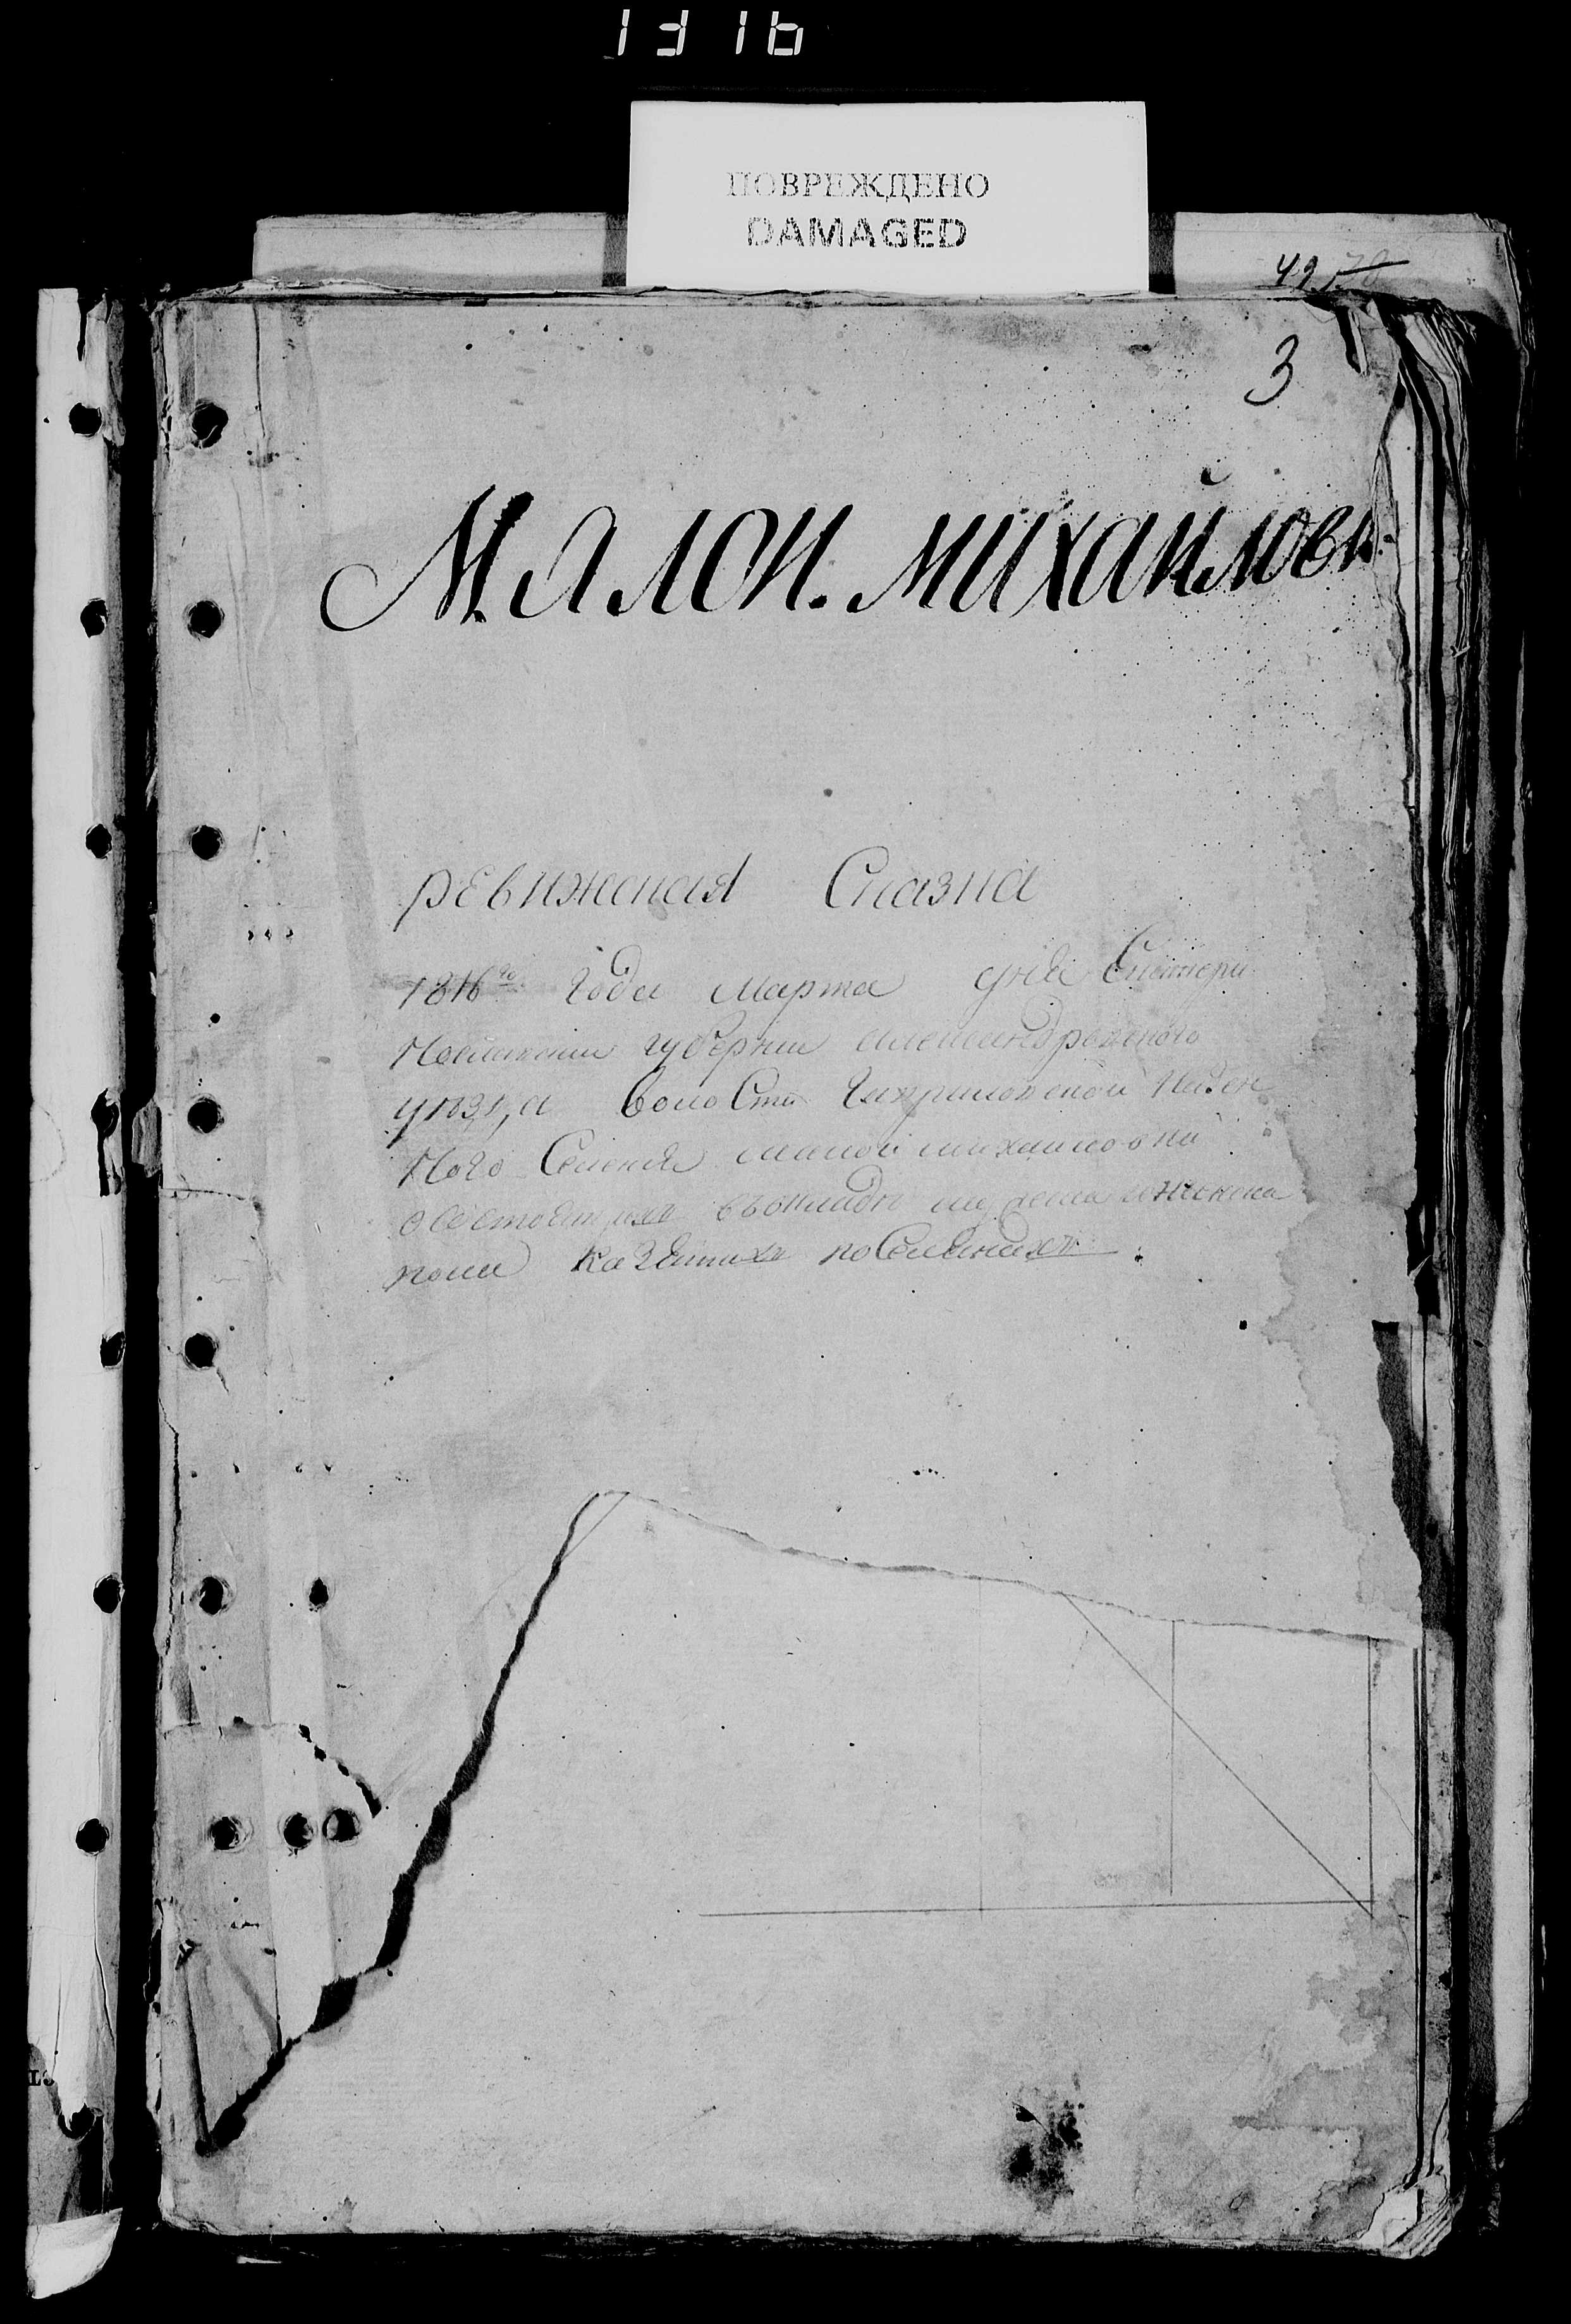 1316
ПОВРЕЖДЕНО
DAMAGED
49 78
3
М. Алои. михайловк
ревижская Сказка
1816го Года Марта дня Екатери
Нославской губернии александровского
уезда волости Гавриловской Казен
Ного Селения малой михайловки
о состоящих в окладе мужеска и женска
пола казенных поселянах